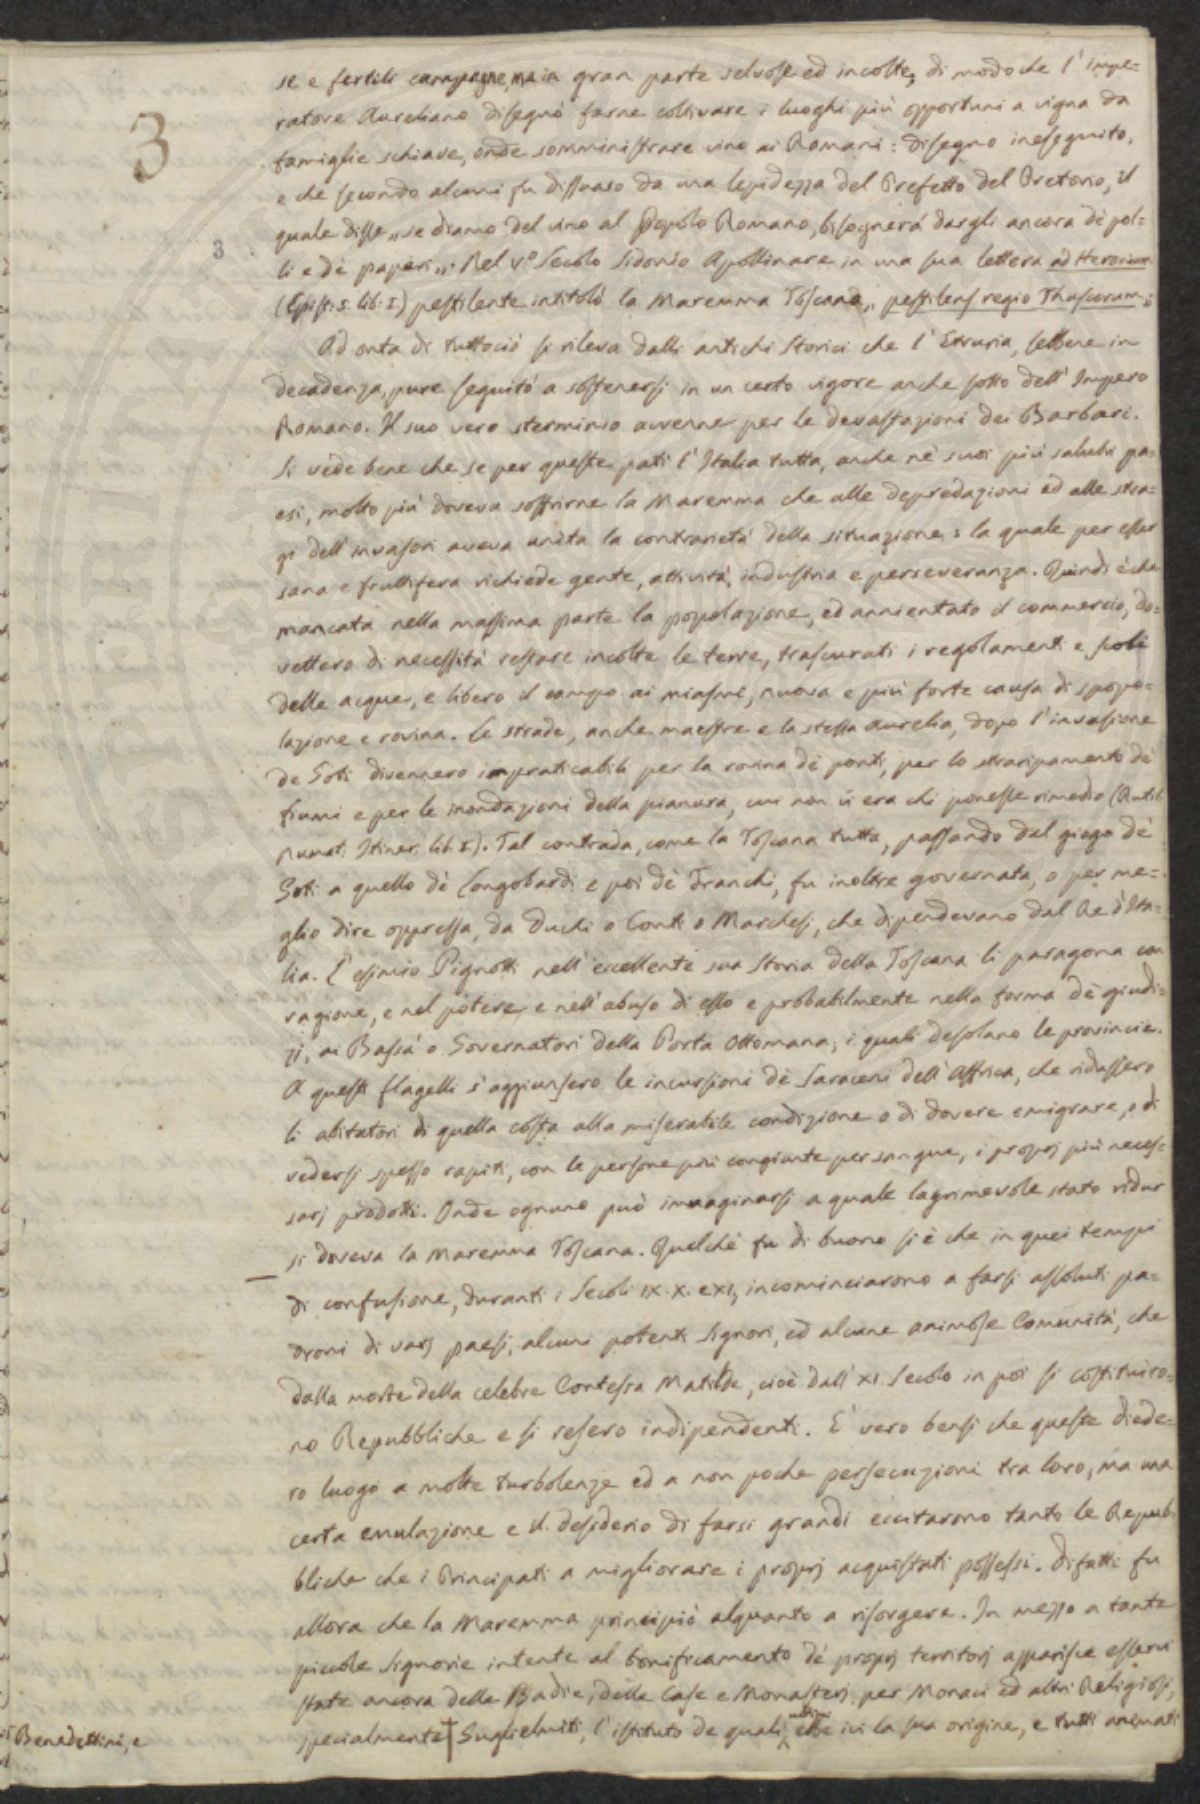 3
3
se e fertili campagne, ma in gran parte selvose ed incolte, di modo che l'impe=
ratore Aureliano disegnò farne coltivare i luoghi più opportuni a vigna da
famiglie schiave, onde somministrare vino ai Romani: disegno ineseguito,
e che secondo alcuni fu dissuaso da una lepidezza del Prefetto del Pretorio, il
quale disse „se diamo del vino al Popolo Romano, bisognerà dargli ancora dè pol=
li e dè paperi„. Nel V.o Secolo Sidonio Apollinare in una sua lettera ad Heronium
(Epist. 5. lib. I) pestilente intitolò la Maremma Toscana„ pestilens regio Thuscorum„
Ad onta di tuttociò si rileva dalli antichi Storici che l'Etruria, sebbene in
decadenza, pure seguitò a sostenersi in un certo vigore anche sotto dell'Impero
Romano. Il suo vero sterminio avvenne per le devastazioni dei Barbari.
Si vede bene che se per queste patì l'Italia tutta, anche nè suoi più salubri pa=
esi, molto più doveva soffrirne la Maremma che alle depredazioni ed alle stra=
gi dell'invasori aveva unita la contrarietà della situazione: la quale per esser
sana e fruttifera richiede gente, attività, industria e perseveranza. Quindi è che
mancata nella massima parte la popolazione, ed annientato il commercio, do=
vettero di necessità restare incolte le terre, trascurati i regolamenti e scoli
delle acque, e libero il campo ai miasmi, nuova e più forte causa di spopo=
lazione e rovina. Le strade, anche maestre e la stessa Aurelia, dopo l'invasione
de Goti divennero impraticabili per la rovina dè ponti, per lo straripamento dè
fiumi e per le inondazioni della pianura, cui non vi era chi ponesse rimedio (Rutil.
Numat. Itiner. lib. I). Tal contrada, come la Toscana tutta, passando dal giogo dè
Goti a quello dè Longobardi e poi dè Franchi, fu inoltre governata, o per me=
glio dire oppressa, da Duchi o Conti o Marchesi, che dipendevano dal Re d'Ita=
lia. L'esimio Pignotti nell'eccellente sua Storia della Toscana li paragona con
ragione, e nel potere e nell'abuso di esso e probabilmente nella forma dè giudi=
zi, ai Bassà o Governatori della Porta Ottomana, i quali desolano le provincie.
A questi flagelli s'aggiunsero le incursioni dè Saraceni dell'Affrica, che ridussero
li abitatori di quella costa alla miserabile condizione o di dovere emigrare, o di
vedersi spesso rapiti, con le persone più congiunte per sangue, i proprj più neces=
sarj prodotti. Onde ognuno può immaginarsi a quale lagrimevole stato ridur
si doveva la Maremma Toscana. Quelchè fu di buono si è che in quei tempi
di confusione, duranti i Secoli IX. X. e XI, incominciarono a farsi assoluti pa=
droni di varj paesi, alcuni potenti Signori, ed alcune animose Comunità, che
dalla morte della celebre Contessa Matilde, cioè dall'XI. Secolo in poi si costituiro=
no Repubbliche e si resero indipendenti. E' vero bensì che queste diede=
ro luogo a molte turbolenze ed a non poche persecuzioni tra loro, ma una
certa emulazione e il desiderio di farsi grandi eccitarono tanto le Repub=
bliche che i Principati a migliorare i proprj acquistati possessi. Difatti fu
allora che la Maremma principiò alquanto a risorgere. In mezzo a tante
piccole Signorie intente al bonificamento dè proprj territorj apparisce esservi
state ancora delle Badie, delle Case e Monasterj per Monaci ed altri Religiosi,
specialmente † Guglielmiti, l'istituto de quali ultimi ebbe ivi la sua origine, e tutti animati
Benedettini, e